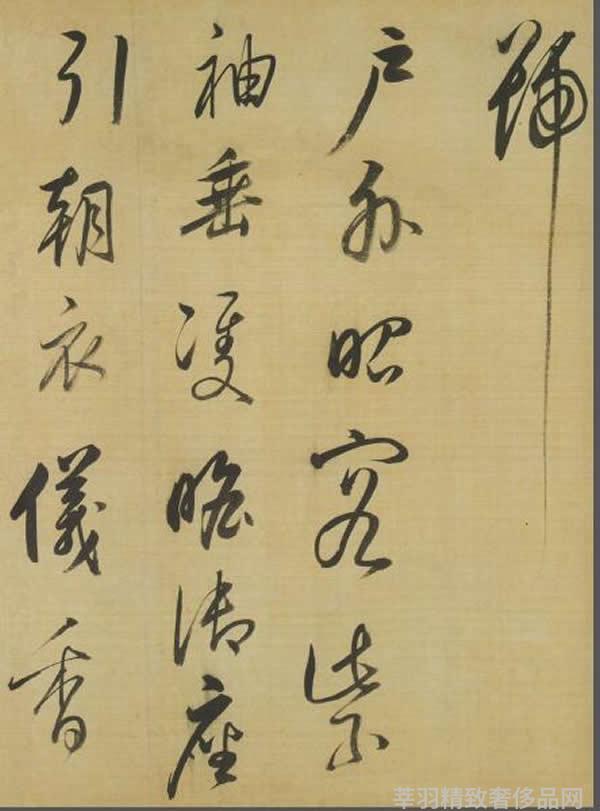 號
戶外昭容紫
袖垂雙瞻御座
引朝衣儀香
莘羽精致奢侈品网